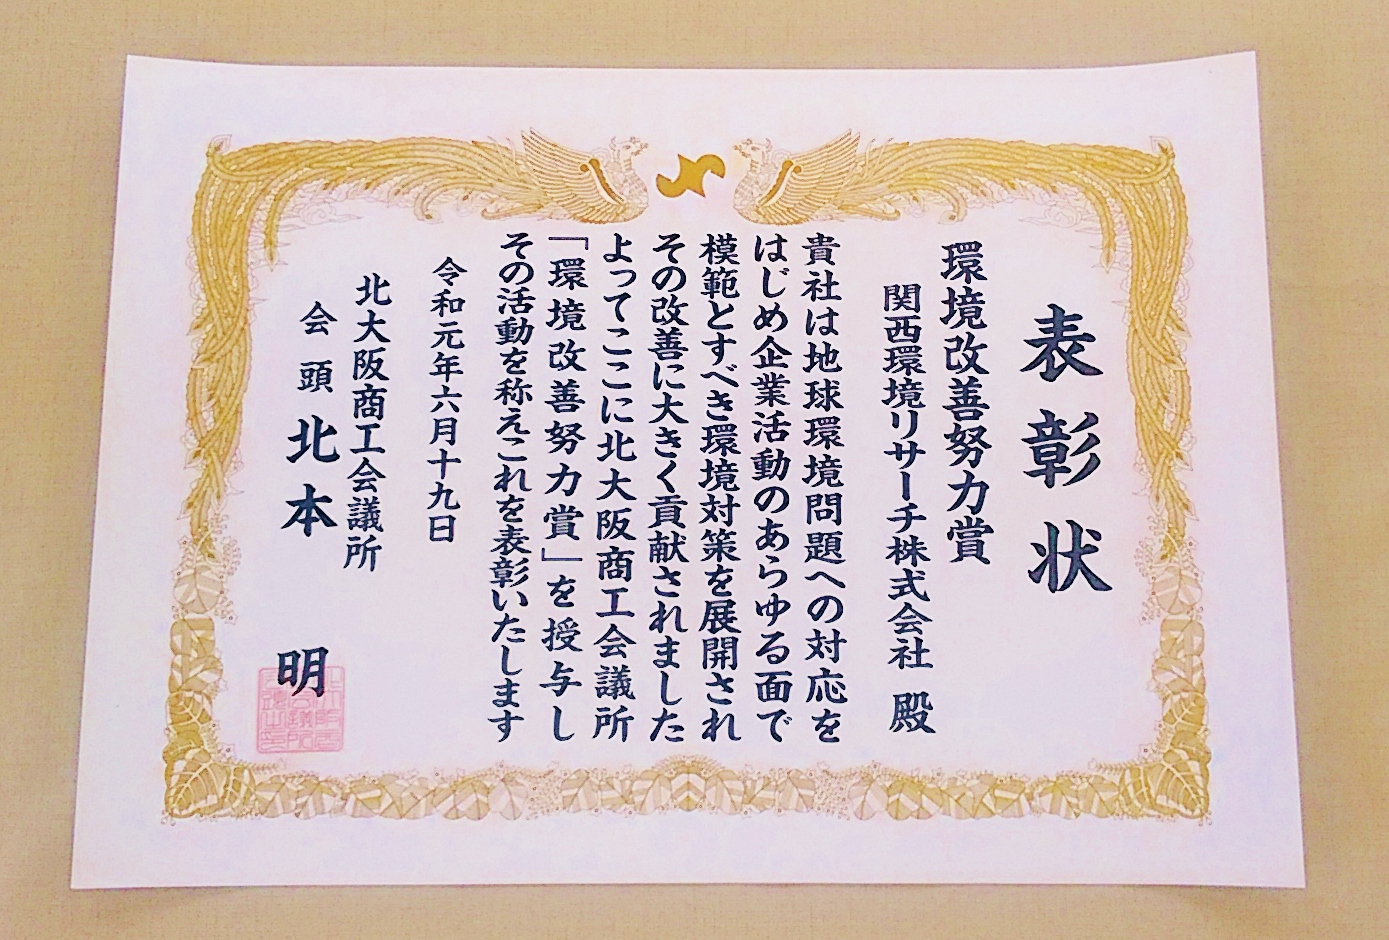 表彰状
環境改善努力賞
関西環境リサーチ株式会社 殿
貴社は地球環境問題への対応を
はじめ企業活動のあらゆる面で
模範とすべき環境対策を展開され
その改善に大きく貢献されました
よってここに北大阪商工会議所
「環境改善努力賞」を授与し
その活動を称えこれを表彰いたします
令和元年六月十九日
北大阪商工会議所
会頭 北本 明